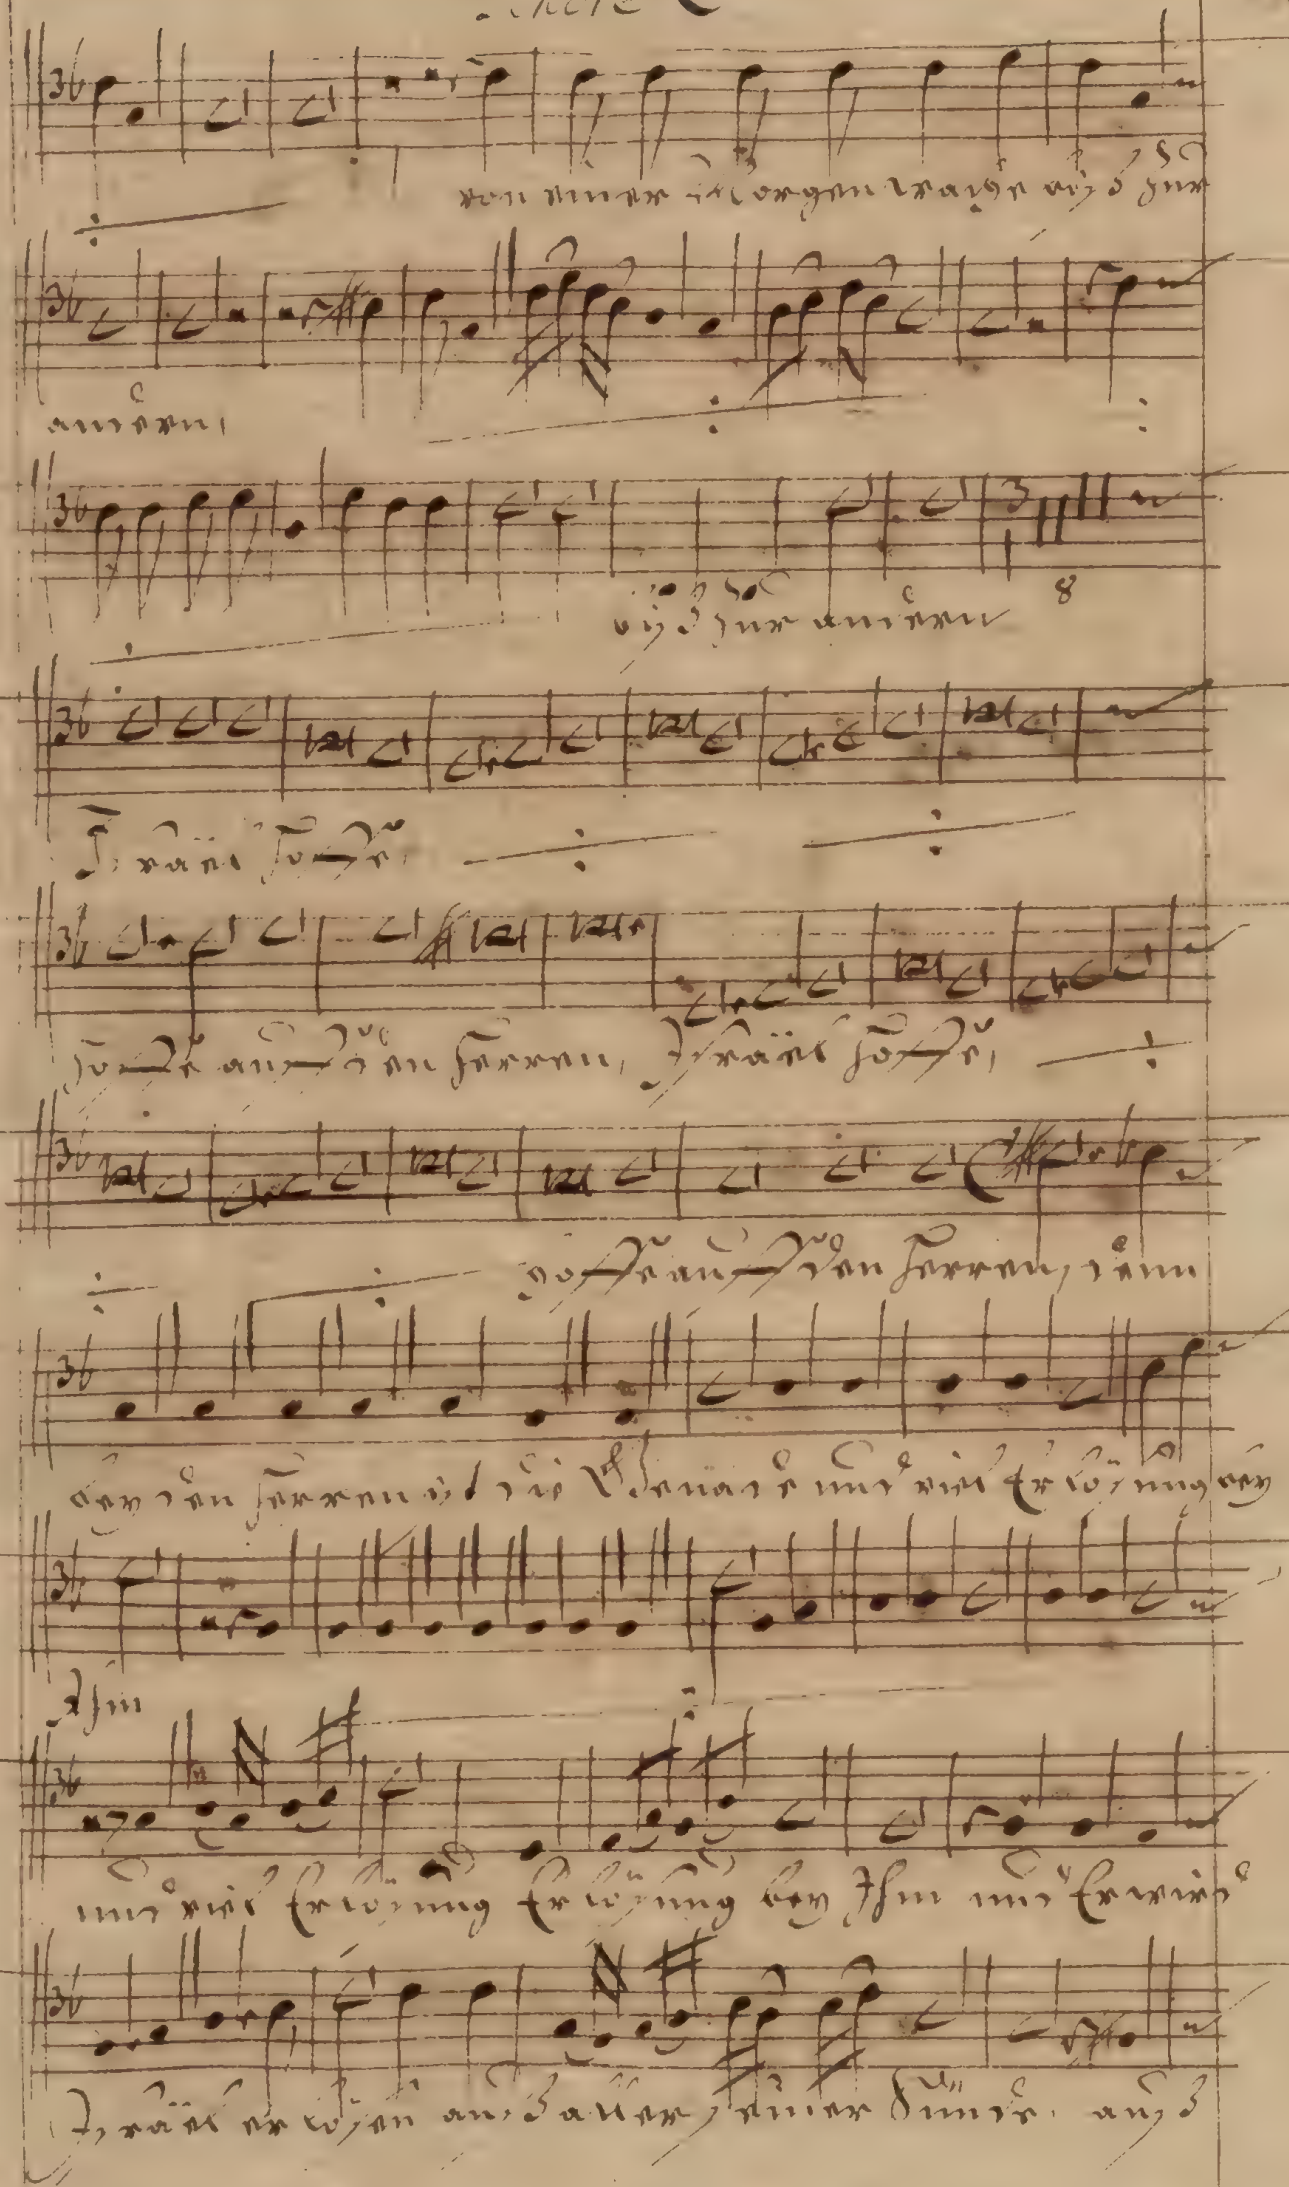 von einer Morgenwache biß zur
andern,
biß zur andern
8
Israël hoffe,
hoffe auff den Herren, Israël hoffe,
hoffe auff den Herren, denn
bey den Herren ist die Genade und viel Erlösung bey
Ihm
und viel Erlösung Erlösung bey Ihm und Er wird
Israël erlösen auß aller seiner Sünde, auß